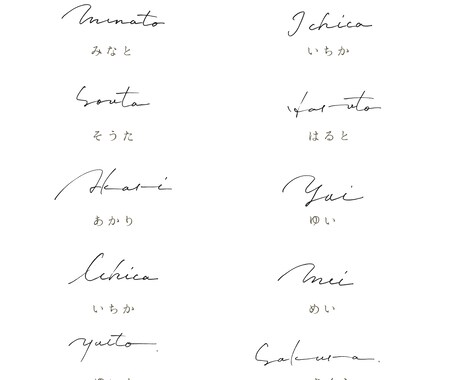 Minato
みなと
Ichica
いちか
Souta
そうた
Haruto
はると
Akari
あかり
Yui
ゆい
Ichica
いちか
Mei
めい
Yuito.
Sakura.